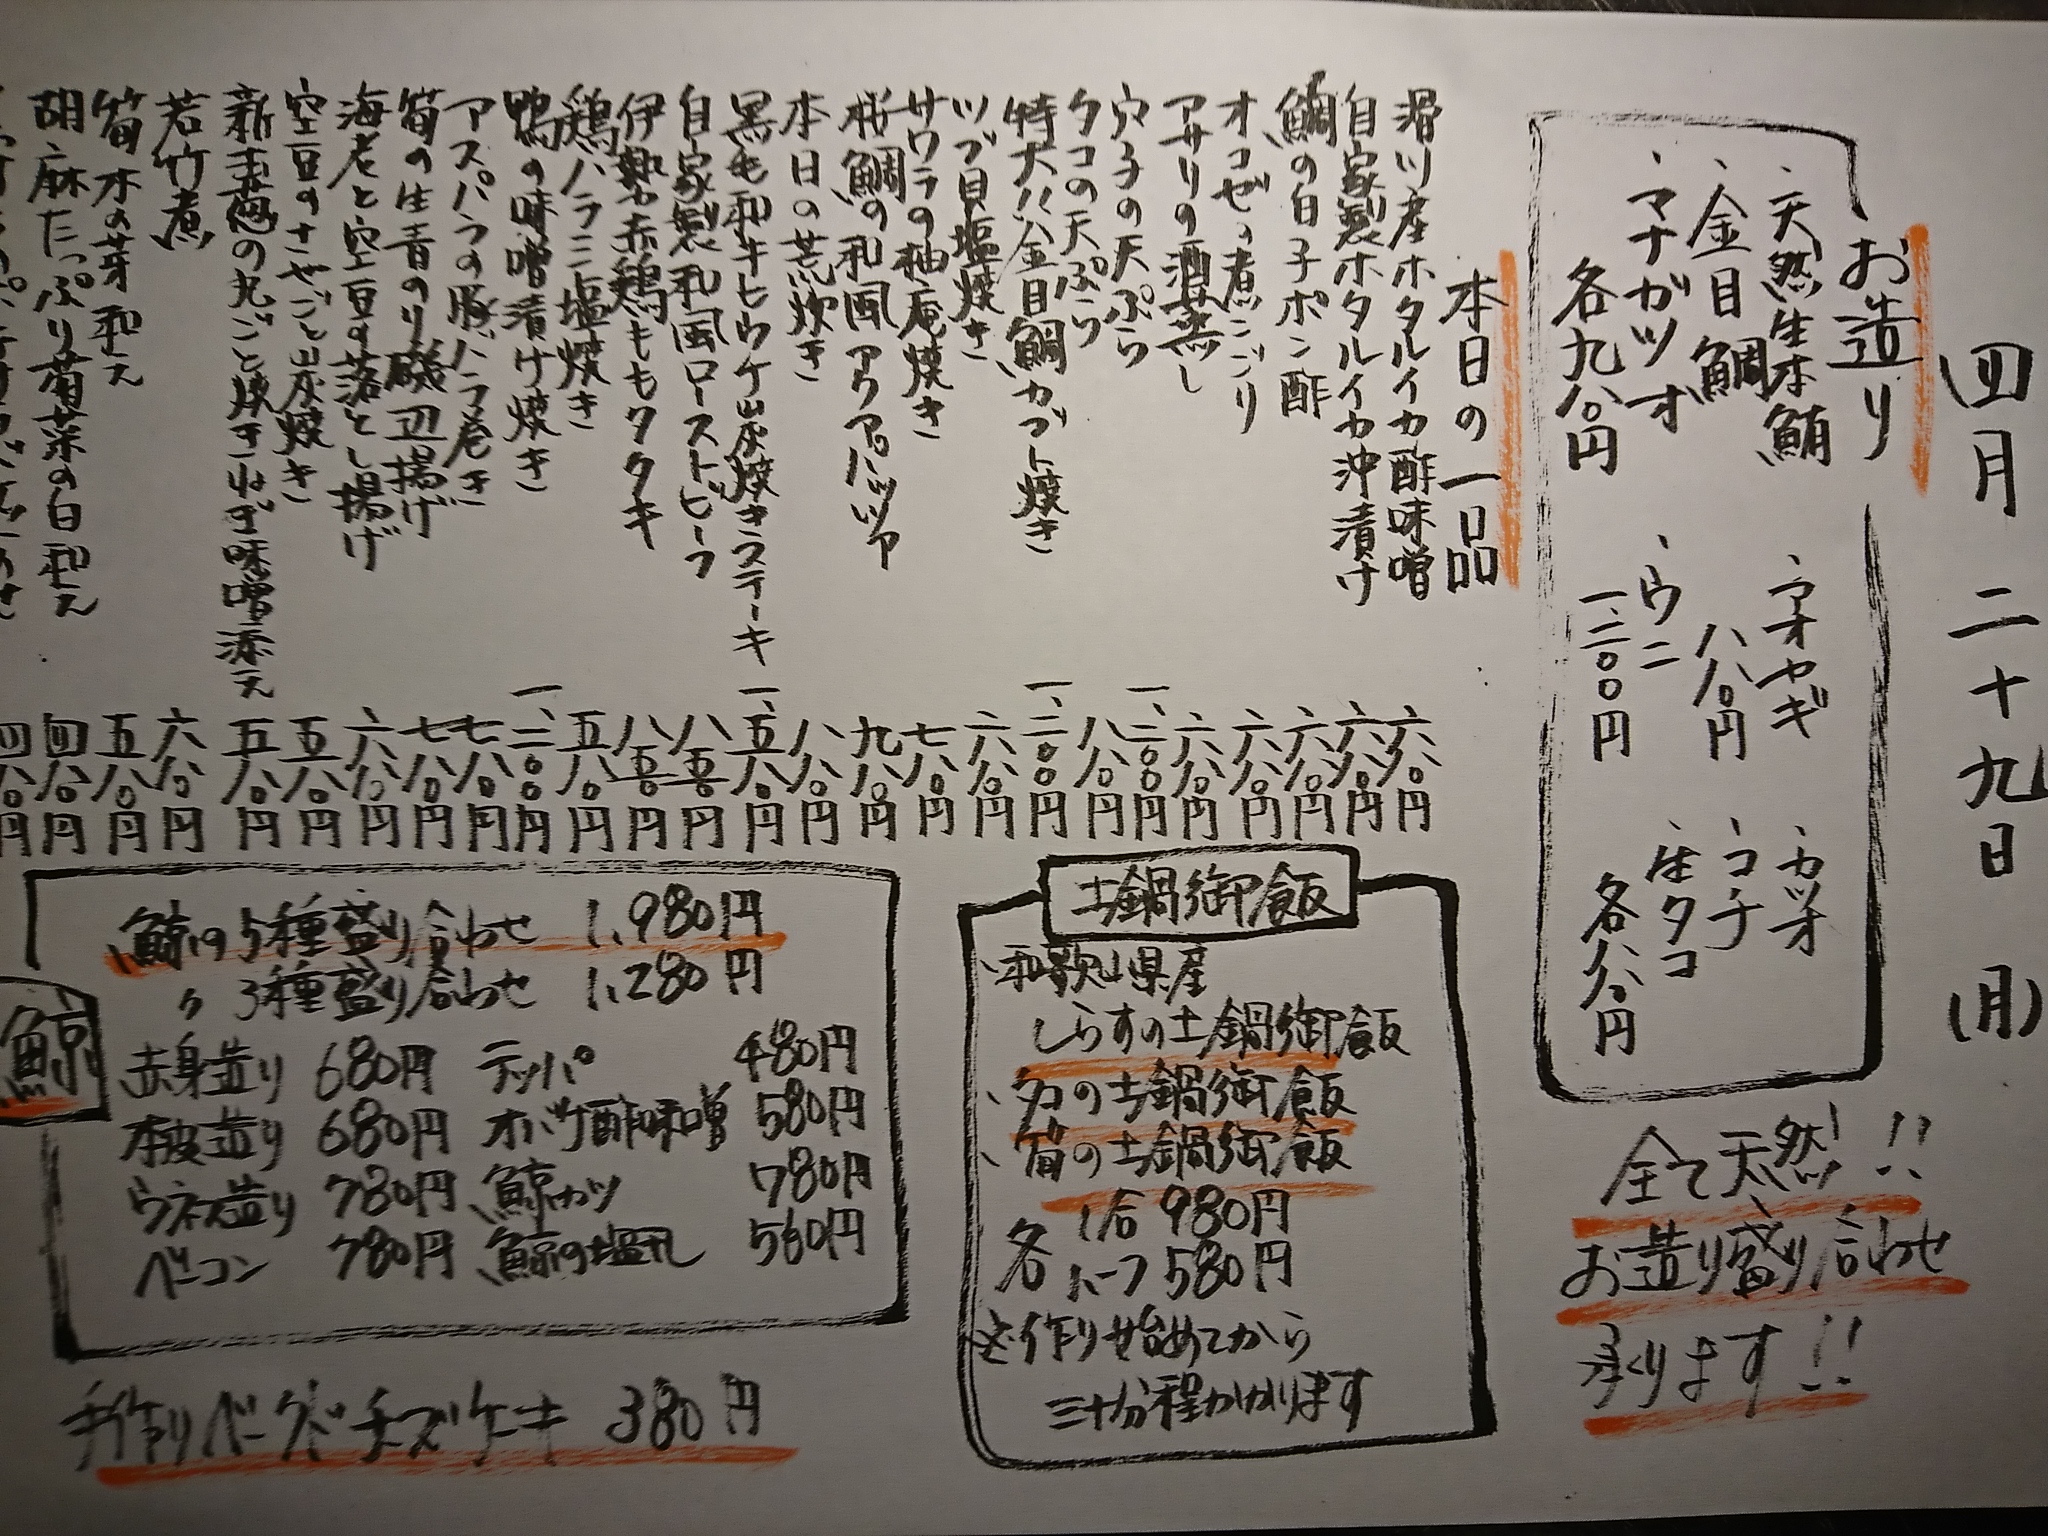 四月二十九日(月)
お造り
、天然生本鮪
、金目鯛
、マナガツオ
各九八〇円
、アオヤギ
八八〇円
、ウニ
一、二〇〇円
、カツオ
、コチ
、生タコ
各八八〇円
全て天然!!
お造り盛り合わせ
承ります!!
本日の一品
滑川産ホタルイカ酢味噌 六八〇円
自家製ホタルイカ沖漬け 六八〇円
鯛の白子ポン酢 六八〇円
オコゼの煮こごり 六八〇円
アサリの酒蒸し 六八〇円
穴子の天ぷら 一、二〇〇円
タコの天ぷら 八八〇円
特大!!金目鯛カブト焼き 一、二〇〇円
ツブ貝塩焼き 六八〇円
サワラの柚庵焼き 七八〇円
桜鯛の和風アクアパッツァ 九八〇円
本日の荒炊き 八八〇円
黒毛和牛ヒウチ炭焼きステーキ 一、五八〇円
自家製和風ローストビーフ 八五〇円
伊勢赤鶏ももタタキ 八五〇円
鶏ハラミ塩焼き 五八〇円
鴨の味噌漬け焼き 一、二〇〇円
アスパラの豚バラ巻き 七八〇円
筍の生青のり磯辺揚げ 七八〇円
海老と空豆の落とし揚げ 六八〇円
空豆のさやごと炭焼き 五八〇円
新玉葱の丸ごと焼きねぎ味噌添え 五八〇円
若竹煮 六八〇円
筍木の芽和え 五八〇円
胡麻たっぷり菊菜の白和え 四八〇円
四八〇円
土鍋御飯
、和歌山県産
しらすの土鍋御飯
、タコの土鍋御飯
、筍の土鍋御飯
各 1合 980円
ハーフ 580円
※作り始めてから
三十分程かかります
鯨
鯨の5種盛り合わせ 1,980円
〃 3種盛り合わせ 1,280円
赤身造り 680円 テッパ 480円
本皮造り 680円 オバケ酢味噌 580円
ウネス造り 780円 鯨カツ 780円
ベーコン 780円 鯨の塩タレ 560円
手作りベークドチーズケーキ 380円